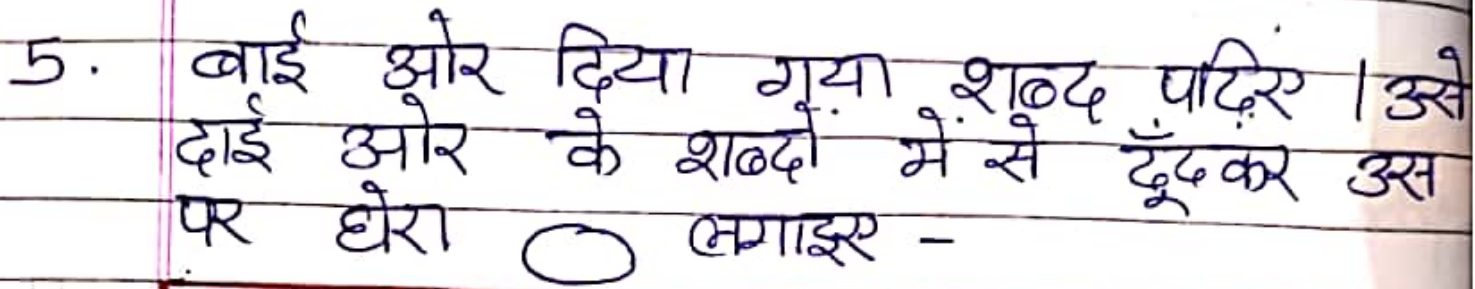 5. बाई ओर दिया गया शब्द पढ़िए । उसे
दाई ओर के शब्दों में से ढूँढकर उस
पर घेरा लगाइए -